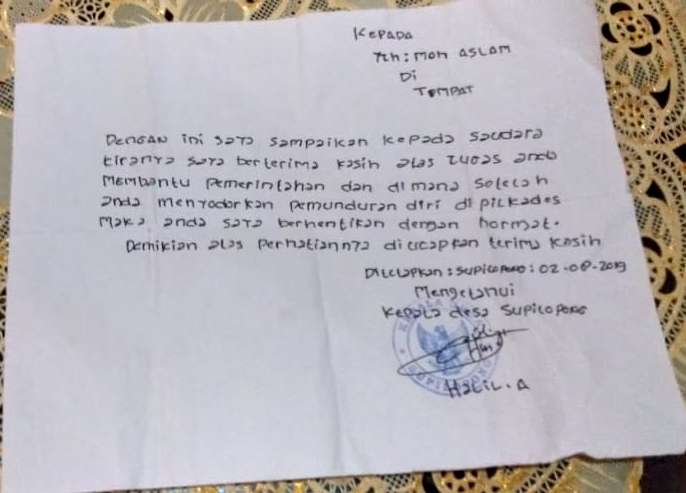 KEPADA
Yth : MOH ASLAM
Di
TEMPAT
DENGAN ini saya sampaikan kepada saudara
kiranya saya berterima kasih atas tugas anda
Membantu pemerintahan dan di mana setelah
anda menyodorkan pemunduran diri di pilkades
Maka anda saya berhentikan dengan hormat.
Demikian atas perhatiannya di ucapkan terima kasih
Ditetapkan : SUPITOPONG : 02-08-2019
Mengetahui
Kepala desa SUPITOPONG
HALIL.A